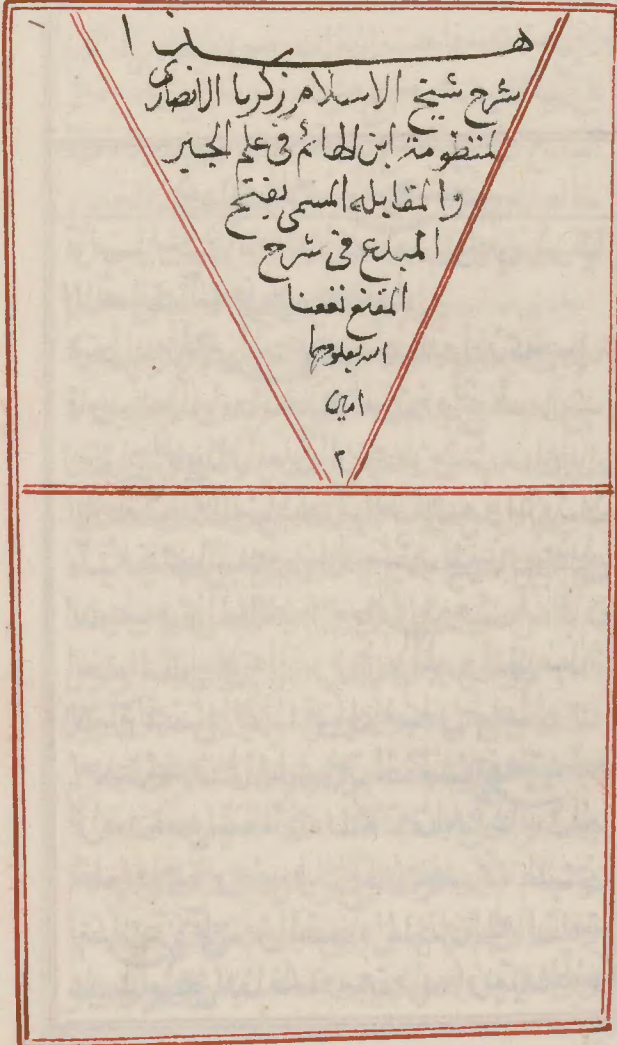 هذا
شرح شيخ الاسلام زكريا الانصاري
لمنظومة ابن الهائم فى علم الجبر
والمقابله المسمى بفتح
المبدع فى شرح
المقنع نفعنا
الله بعلومهما
امين
٢